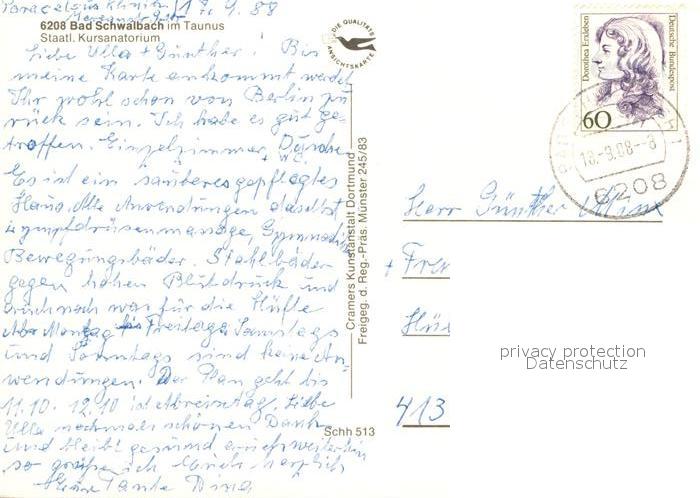 Paracelsus Klinik 17.9.88
6208 Bad Schwalbach im Taunus
Staatl. Kursanatorium
DIE QUALITÄTS
ANSICHTSKARTE
Liebe Ulla + Günther! Bis
meine Karte ankommt werdet
Ihr wohl schon von Berlin zu
rück sein. Ich habe es gut ge-
troffen. Einzelzimmer, Dusche
+ W.C.
Es ist ein sauberes gepflegtes
Haus. Alle Anwendungen daselbst
Lympfdrüsenmassage, Gymnastik
Bewegungsbäder. Stahlbäder
gegen hohen Blutdruck und
auch noch was für die Hüfte
Montag bis Freitag. Samstags
und Sonntags sind keine An-
wendungen. Der Plan geht bis
11.10. 12.10 ist Abreisetag. Liebe
Ulla nochmals schönen Dank
und bleibt gesund auch weiterhin
so grüße ich Euch herzlich
Eure Tante Dina
Cramers Kunstanstalt Dortmund
Freigeg. d. Reg.-Präs. Münster 245/83
Schh 513
Dorothea Erxleben
Deutsche Bundespost
60
18.-9.88--8
6208
Herr Günther
+ Frau
413
privacy protection
Datenschutz